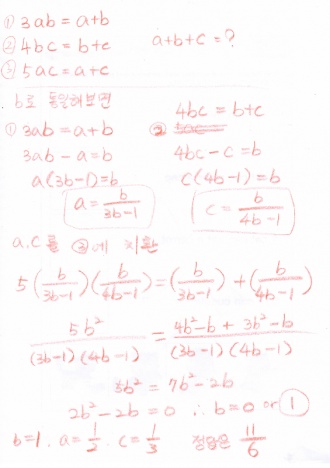 ① 3ab = a+b
② 4bc = b+c a+b+c = ?
③ 5ac = a+c
b로 통일해보면
4bc = b+c
① 3ab = a+b ②
3ab - a = b 4bc - c = b
a(3b-1) = b c(4b-1) = b
a = b/(3b-1) c = b/(4b-1)
a, c 를 ③에 치환
5(b/(3b-1))(b/(4b-1)) = (b/(3b-1)) + (b/(4b-1))
5b²/((3b-1)(4b-1)) = (4b²-b + 3b²-b)/((3b-1)(4b-1))
5b² = 7b²-2b
2b²-2b = 0 ∴ b=0 or 1
b=1. a=1/2. c=1/3 정답은 11/6